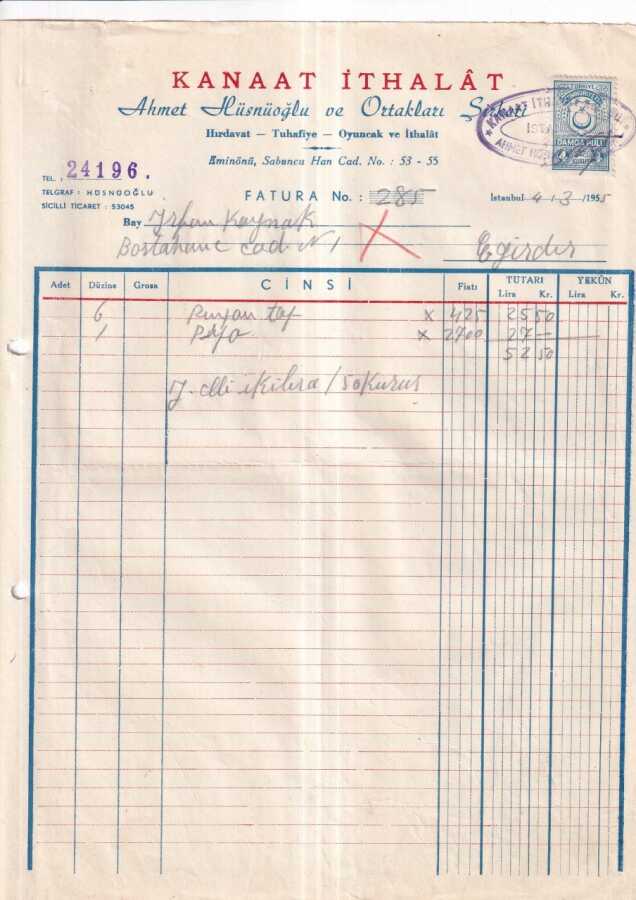 KANAAT İTHALÂT
Ahmet Hüsnüoğlu ve Ortakları Şirketi
Hırdavat — Tuhafiye — Oyuncak ve İthalât
Eminönü, Sabuncu Han Cad. No. : 53 - 55
KANAAT İTH
İST
AHMET HÜS
DAMGA PULU
KURUŞ
TEL. : 24196.
TELGRAF : HÜSNÜOĞLU
SİCİLLİ TİCARET : 53045
FATURA No. : 285
İstanbul 4.3/1955
Bay İrfan Kaynak
Bostahane cad. N 1
Egirdir
Adet Düzine Grosa CİNSİ Fiatı TUTARI YEKÛN
Lira Kr. Lira Kr.
6 x 425 25 50
1 x 2700 27 —
52 50
Y. elli iki lira / 50 Kuruş